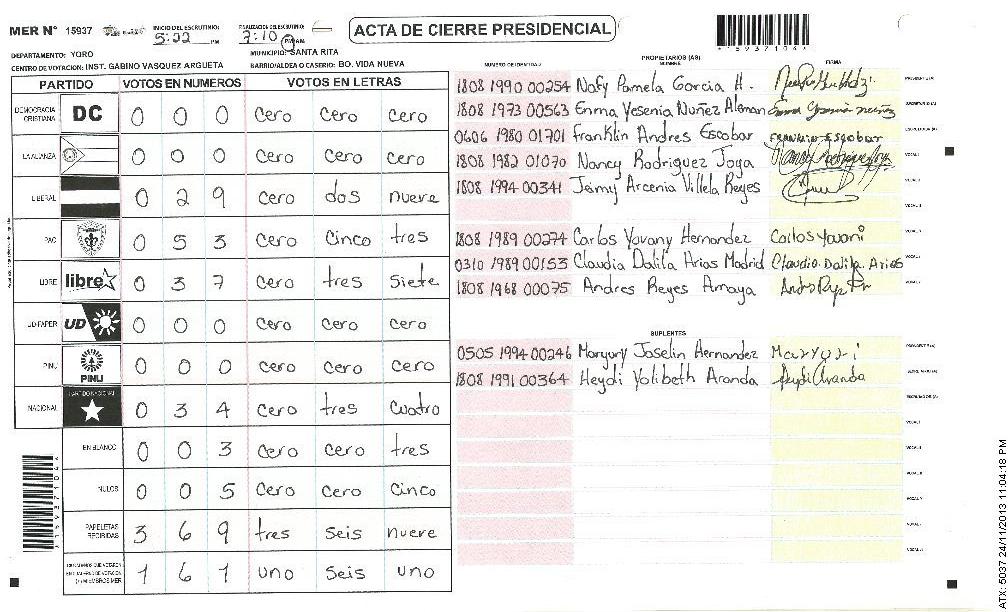 MER N° 15937
INICIO DEL ESCRUTINIO: 5:22 PM
FINALIZACION DEL ESCRUTINIO: 7:10 PM AM
ACTA DE CIERRE PRESIDENCIAL
DEPARTAMENTO: YORO
MUNICIPIO: SANTA RITA
CENTRO DE VOTACION: INST. GABINO VASQUEZ ARGUETA
BARRIO/ALDEA O CASERIO: BO. VIDA NUEVA
PARTIDO VOTOS EN NUMEROS VOTOS EN LETRAS
DEMOCRACIA CRISTIANA DC 0 0 0 cero cero cero
LA ALIANZA 0 0 0 cero cero cero
LIBERAL 0 29 cero dos nueve
PAC 0 5 3 cero cinco tres
LIBRE libre 0 3 7 cero tres siete
UD-FAPER UD 0 0 0 cero cero cero
PINU PINU 0 0 0 cero cero cero
NACIONAL PARTIDO NACIONAL 0 3 4 cero tres cuatro
EN BLANCO 0 0 3 cero cero tres
NULOS 0 0 5 cero cero cinco
PAPELETAS RECIBIDAS 3 6 9 tres seis nueve
1 6 1 uno seis uno
PROPIETARIOS (AS)
NUMERO DE IDENTIDAD NOMBRE FIRMA
1808 1990 00254 Nafy Pamela Garcia H.
1808 1973 00563 Enma Yesenia Nuñez Aleman
0606 1980 01701 Franklin Andres Escobar Franklin Escobar
1808 1982 01070 Nancy Rodriguez Joya
1808 1994 00341 Jeimy Arcenia Villela Reyes
1808 1989 00274 Carlos Yovany Hernandez Carlos Yovani
0310 1989 00153 Claudia Dalila Arias Madrid Claudia Dalila Arias
1808 1968 00075 Andres Reyes Amaya
SUPLENTES
0505 1994 00246 Maryury Joselin Hernandez Maryuri
1808 1991 00364 Heydi Yolibeth Aranda Heydi Aranda
ATX: 5037 24/11/2013 11:04:18 PM